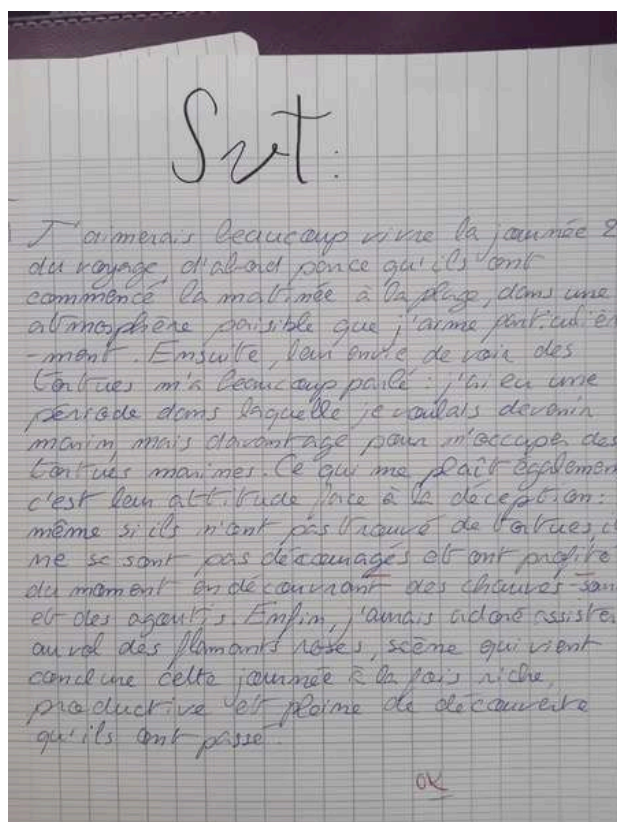 Svt:
J'aimerais beaucoup vivre la journée 2
du voyage, d'abord parce qu'ils ont
commencé la matinée à la plage, dans une
atmosphère paisible que j'aime particuliér
-ment. Ensuite, leur envie de voir des
tortues m'a beaucoup parlé : j'ai eu une
période dans laquelle je voulais devenir
marin, mais davantage pour m'occuper des
tortues marines. Ce qui me plaît également
c'est leur attitude face à la déception :
même si ils n'ont pas trouvé de tortues, i
ne se sont pas découragés et ont profité
du moment en découvrant des chauves-sour
et des agoutis. Enfin, j'aurais adoré assister
au vol des flamants roses, scène qui vient
conclure cette journée à la fois riche,
productive et pleine de découverte
qu'ils ont passé.
OK